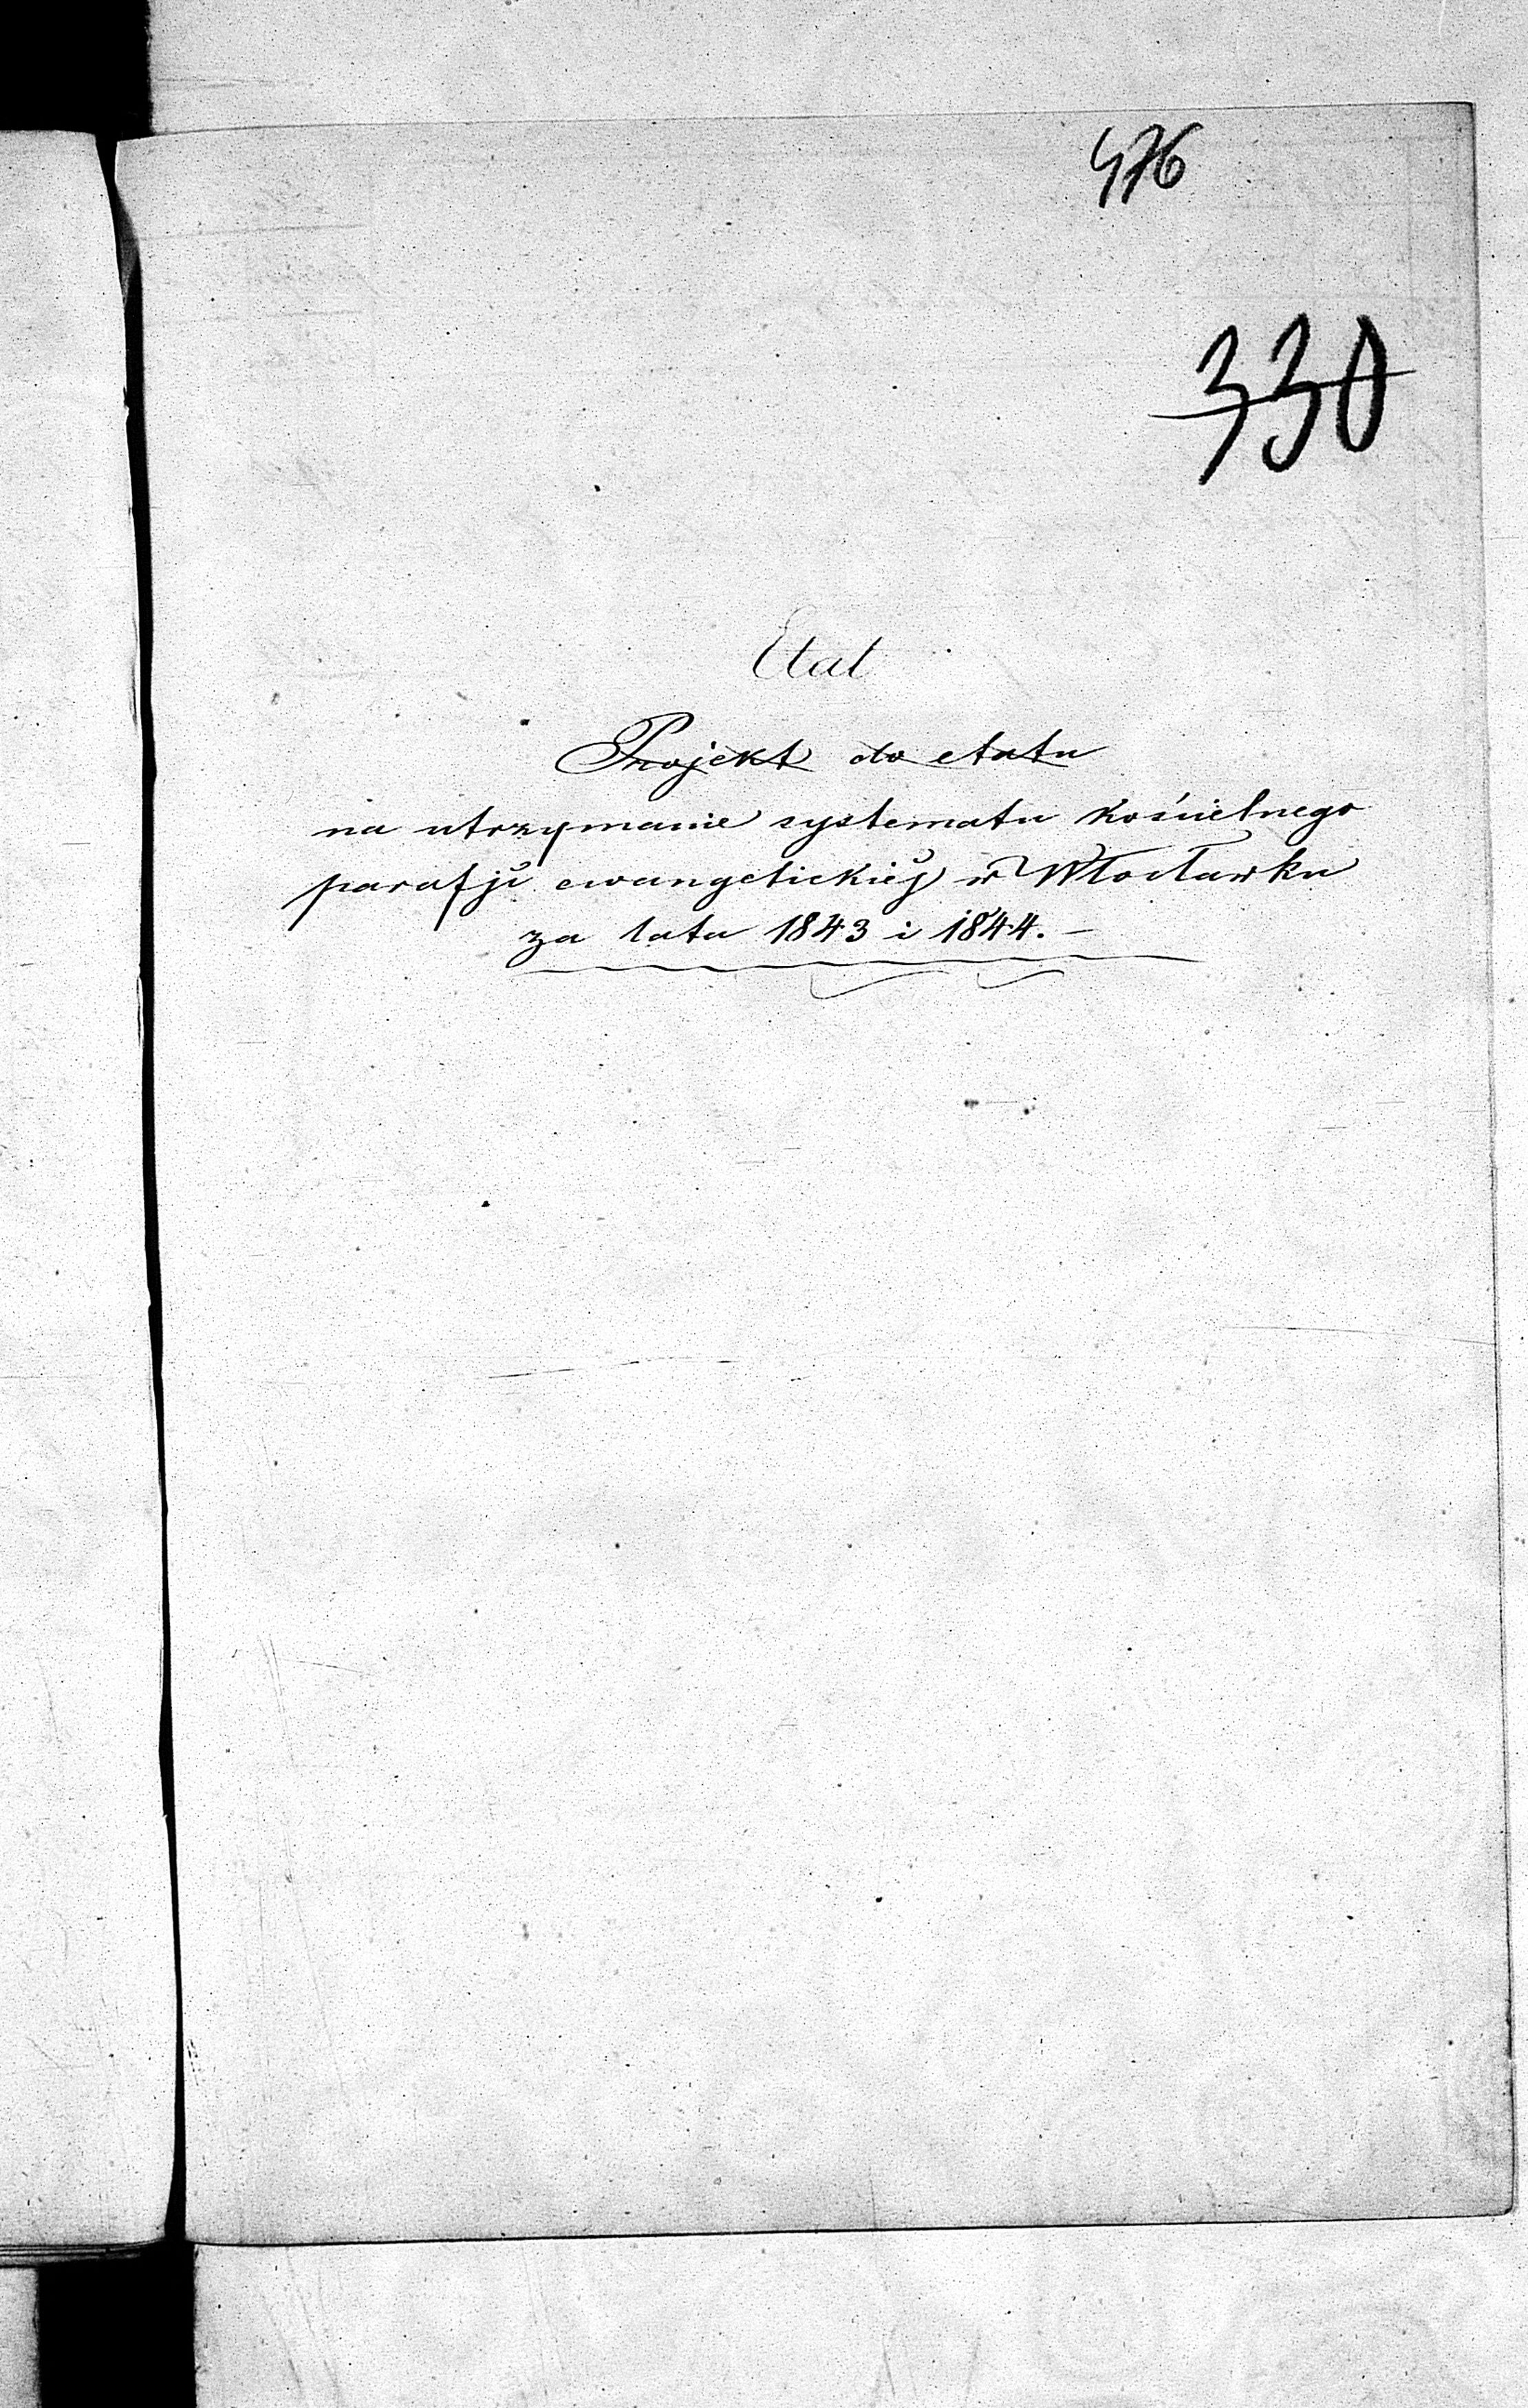 476
330
Etat
Projekt do etatu
na utrzymanie systematu kościelnego
parafji ewangelickiéj w Włocławku
za lata 1843 i 1844. –